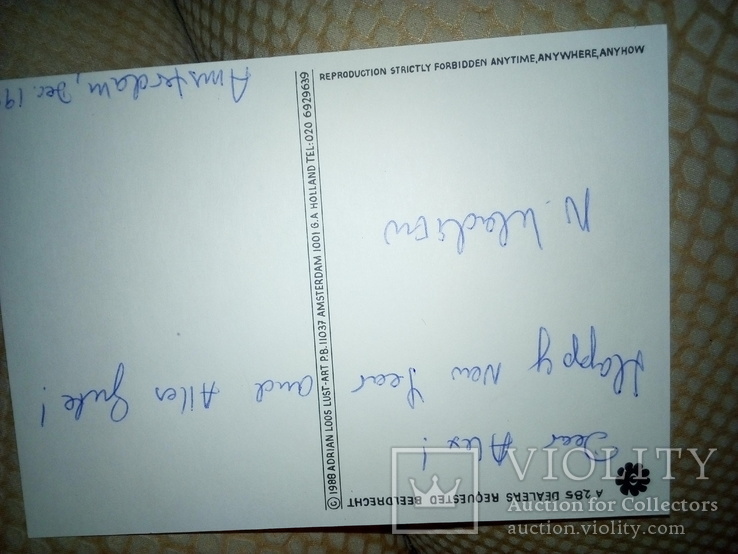 Amsterdam, Dec. 19
REPRODUCTION STRICTLY FORBIDDEN ANYTIME, ANYWHERE, ANYHOW
© 1988 ADRIAN LOOS LUST-ART P.B. 11037 AMSTERDAM 1001 G.A HOLLAND TEL:-020 6929639
A 285 DEALERS REQUESTED BEELDRECHT
Dear Alex!
Happy New Year and Alles Gute!
N.
VIOLITY
Auction for Collectors
auction.violity.com